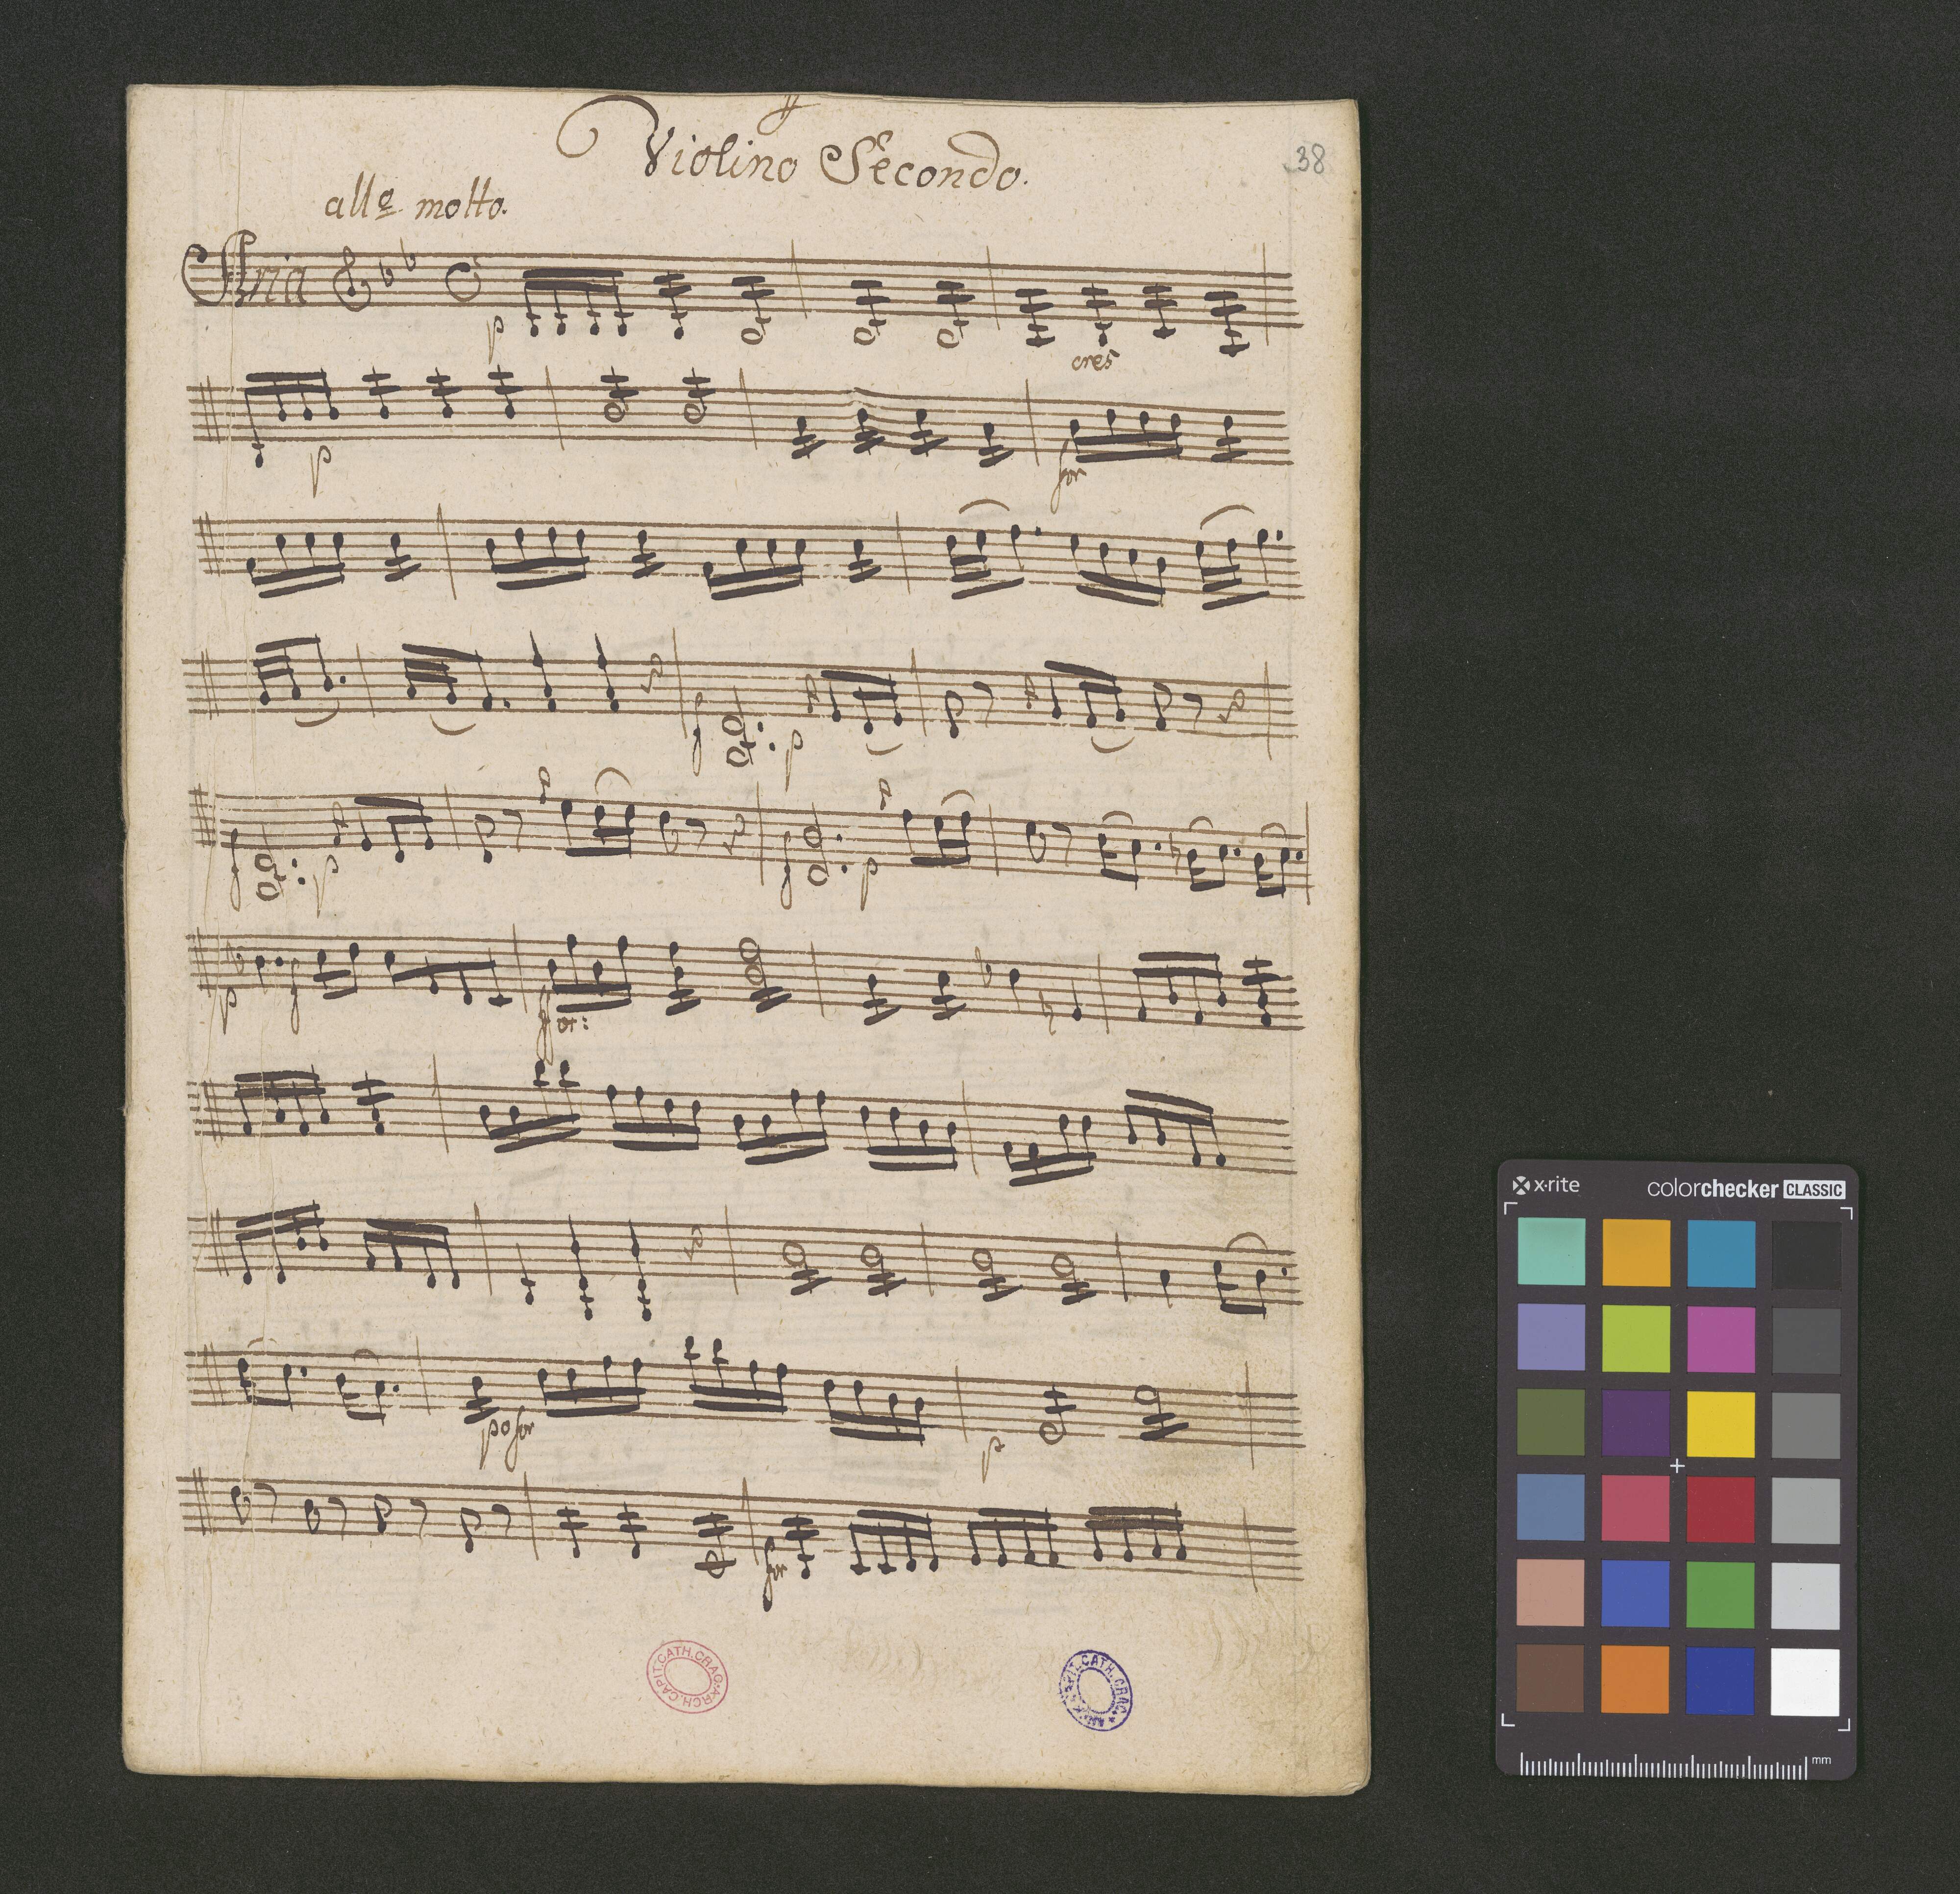 Violino Secondo.
38
all⁰ molto.
Aria
p
cres
p
for
f
p
f
p
f
p
p
f
for:
po for
p
for
ARCH. CAPIT. CATH. CRAC.
CAPIT. CATH. CRAC.
x·rite
colorchecker CLASSIC
mm